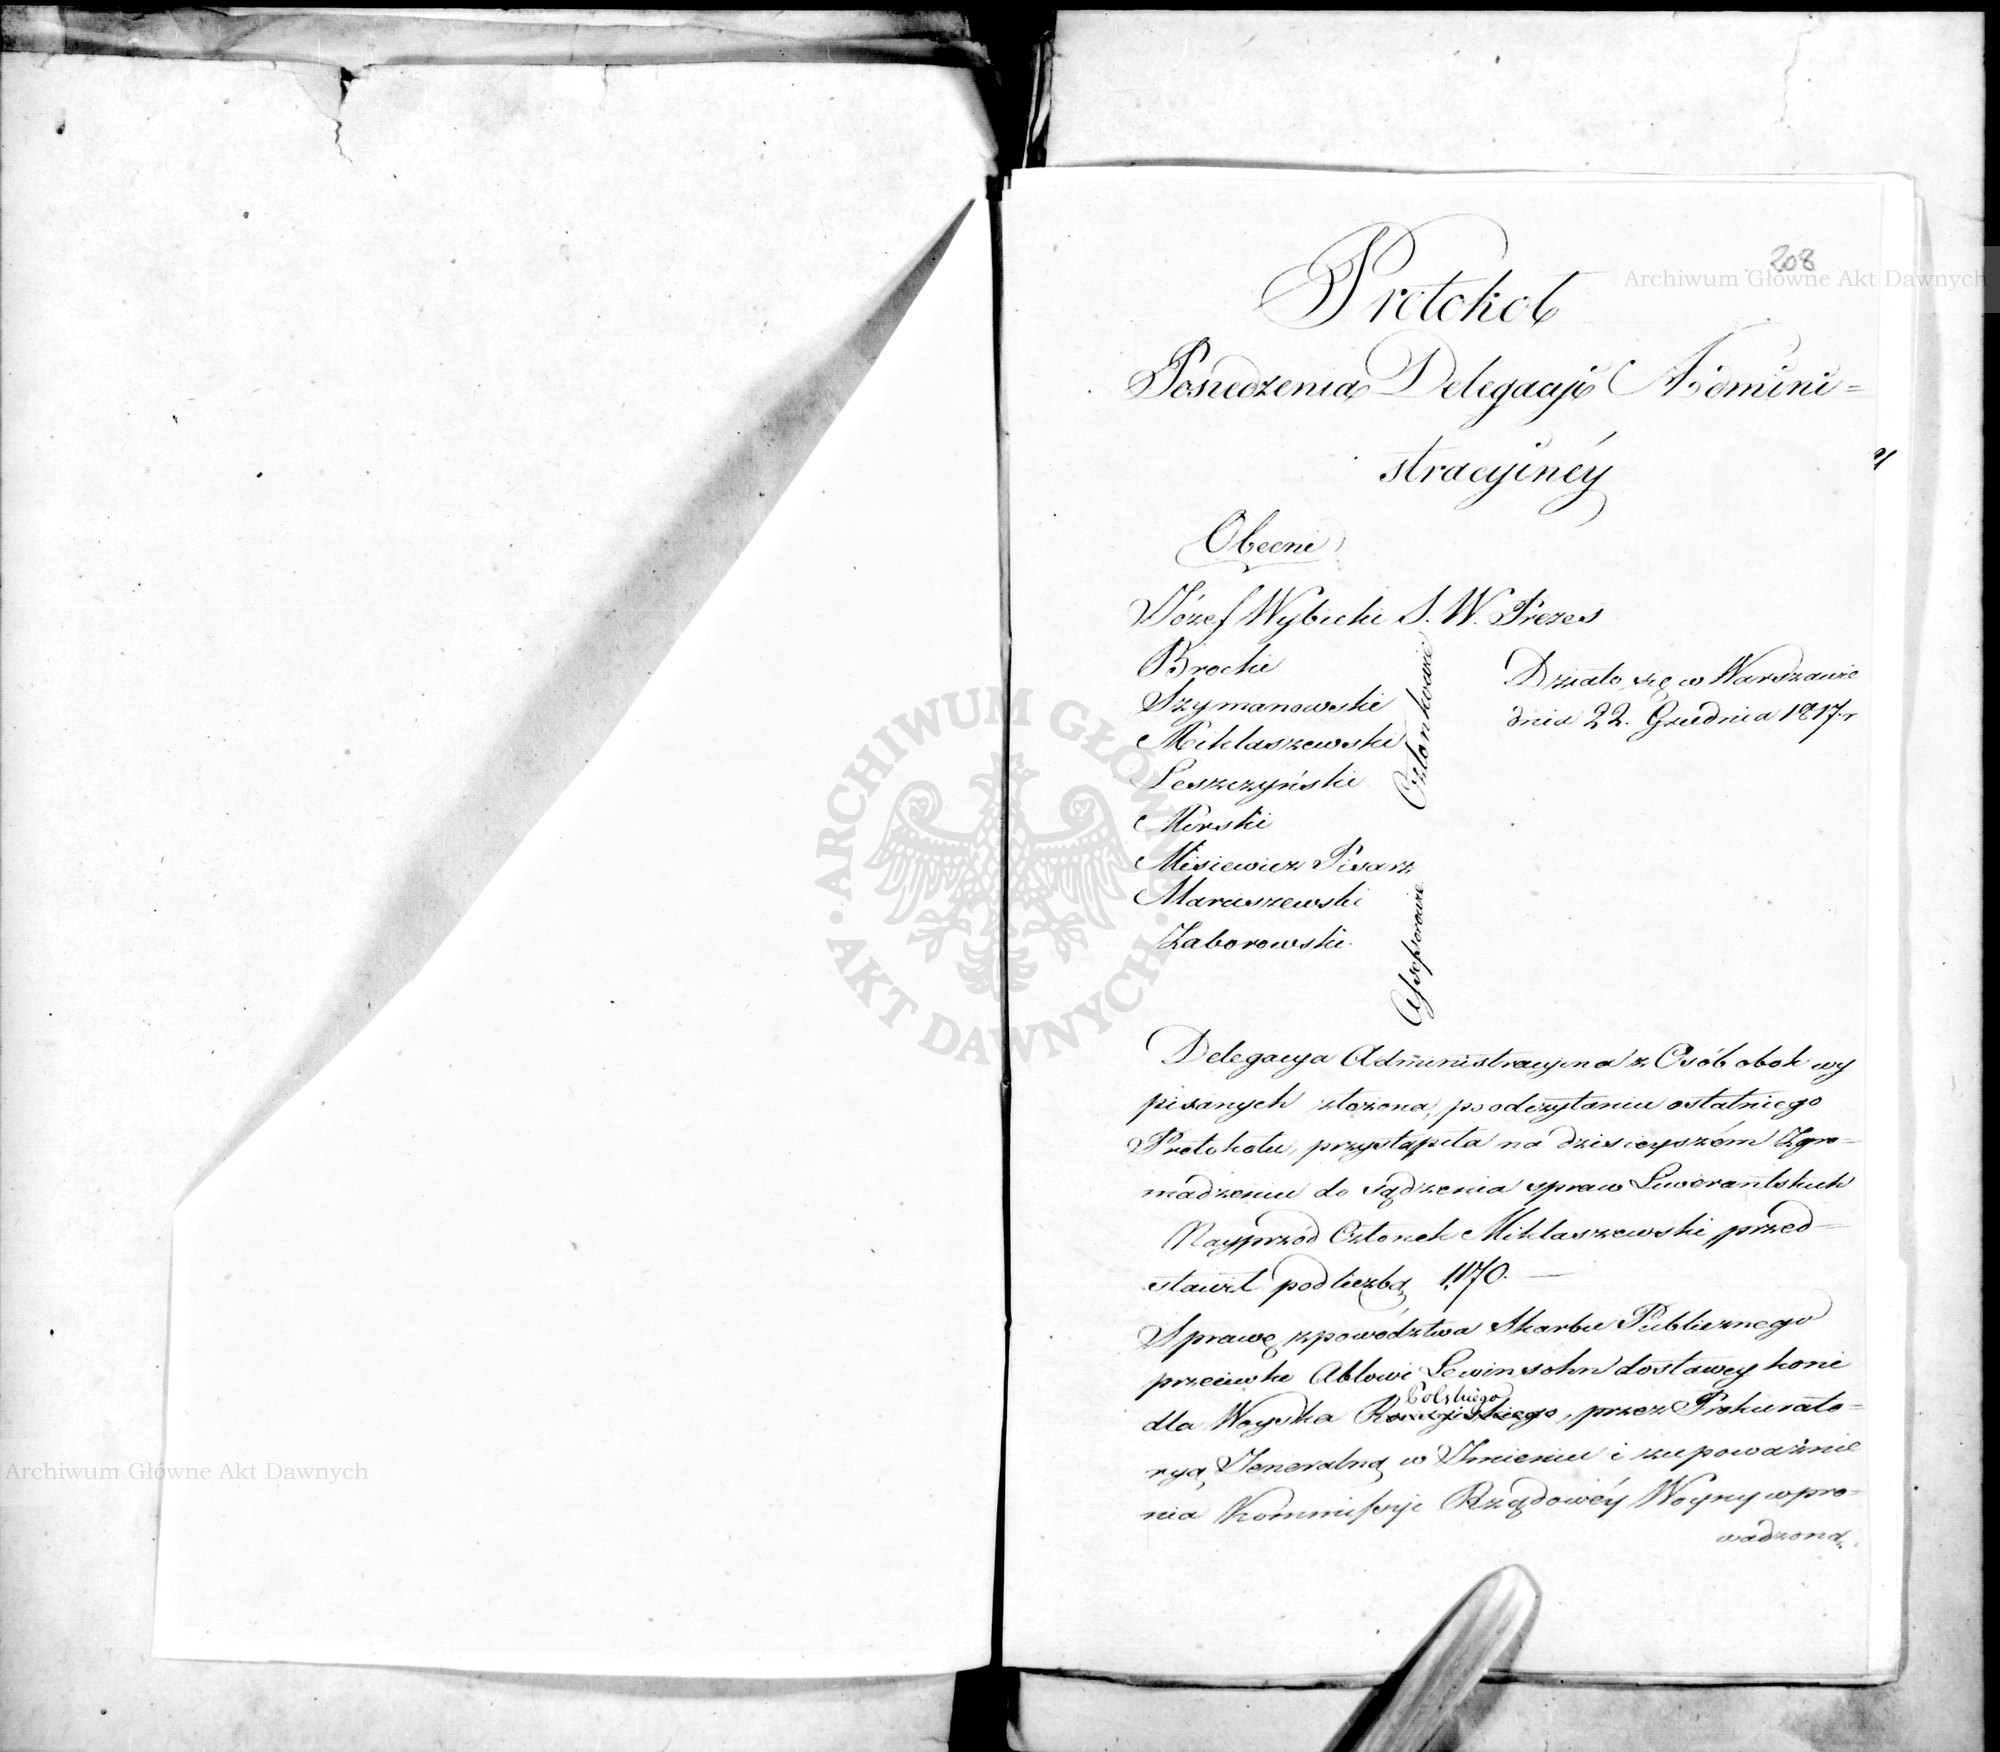 208
Archiwum Główne Akt Dawnych
Protokół
Posiedzenia Delegacyi Admini=
stracyinéy
Obecni
Józef Wybicki S. W. Prezes
Brocki
Szymanowski
Miklaszewski
Leszczyński
Mirski
Członkowie
Działo się w Warszawie
dnia 22. Grudnia 1817. r
Misiewicz Pisarz
Maruszewski
Zaborowski.
Assessorowie
ARCHIWUM GŁÓWNE
AKT DAWNYCH
Delegacya Administracyina z Osób obok wy
pisanych złożona, po odczytaniu ostatniego
Protokołu, przystąpiła na dzisieyszém Zgro-
madzeniu do sądzenia spraw Liwerantskich
Nayprzód Członek Miklaszewski przed-
stawił pod liczbą 1170. —
Sprawę z powództwa Skarbu Publicznego
przeciwko Ablowi Lewinsohn dostawcy koni
Polskiego
dla Woyska, przez Prokurato=
ryą Jeneralną w Imieniu i z upoważnie
nia Kommissyi Rządowéy Woyny wpro=
wadzoną.
Archiwum Główne Akt Dawnych